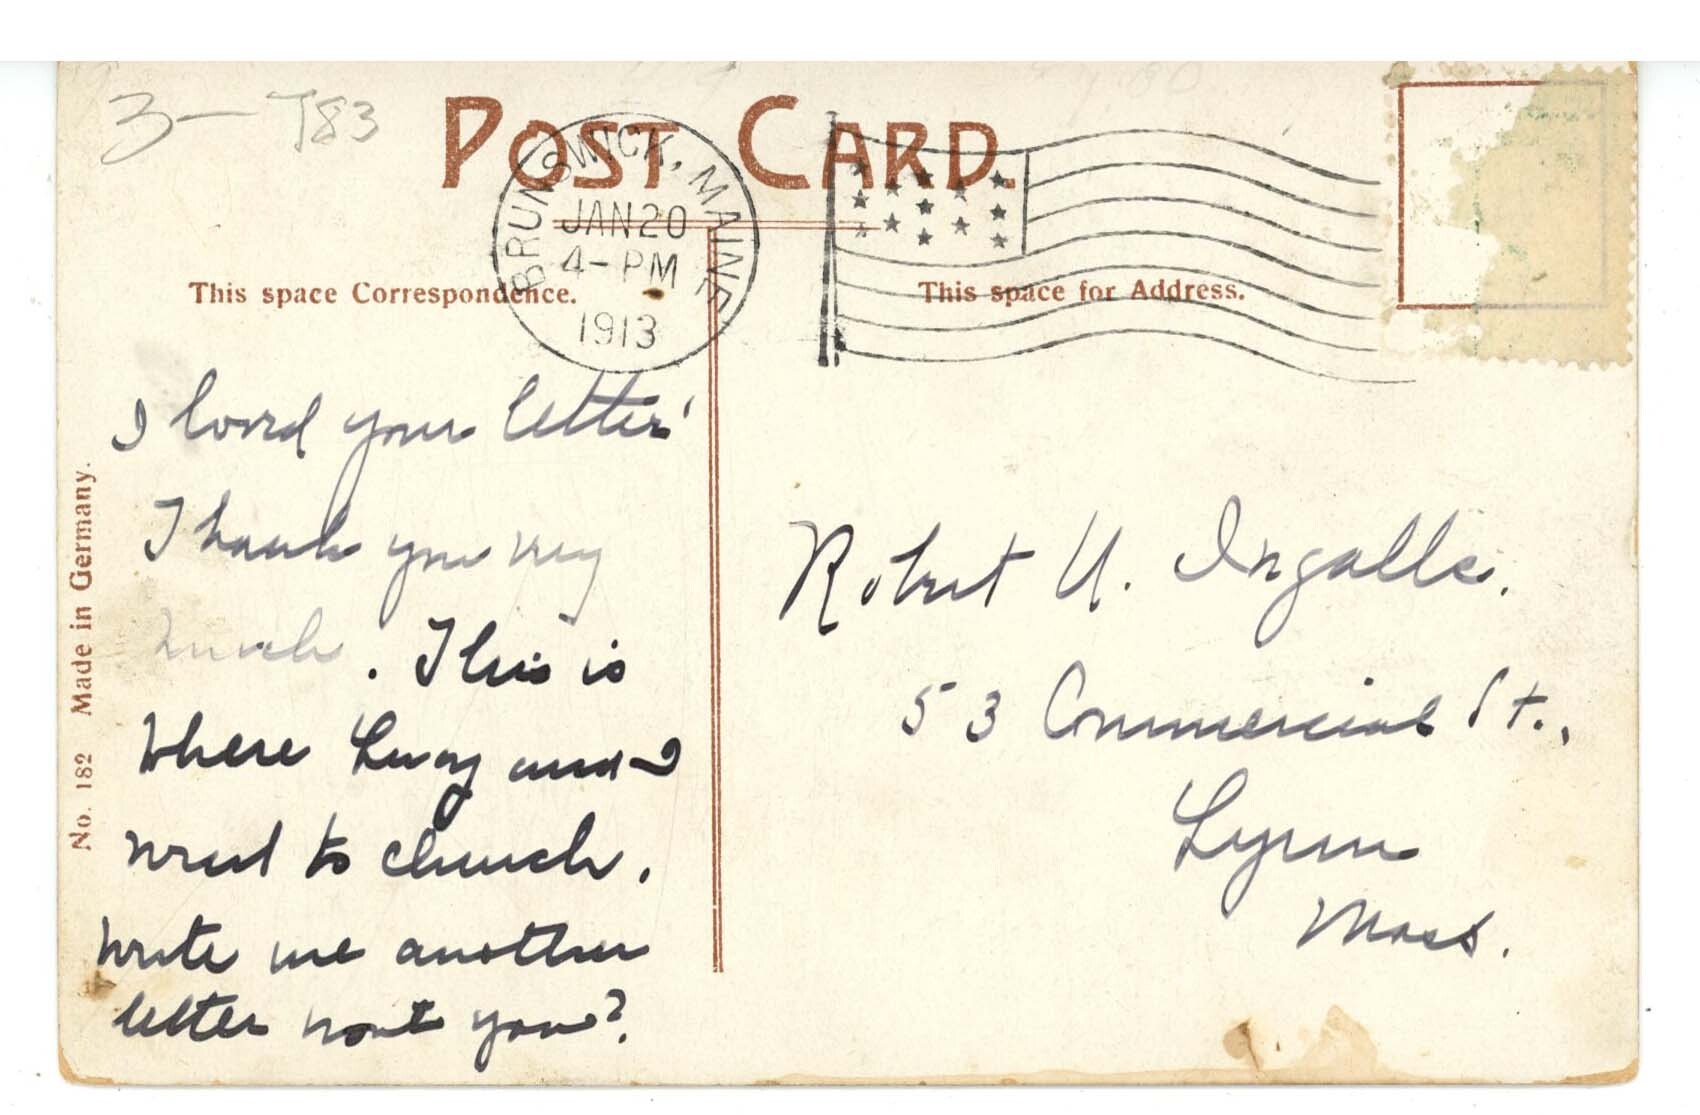 3- T83
POST CARD.
BRUNSWICK, MAINE
JAN 20
4-PM
1913
This space Correspondence.
This space for Address.
I loved your letter!
Thank you very
much. This is
where Lucy and I
went to church.
Write me another
letter wont you?
Robert U. Ingalls.
53 Commercial St.,
Lynn
Mass.
No. 182 Made in Germany.